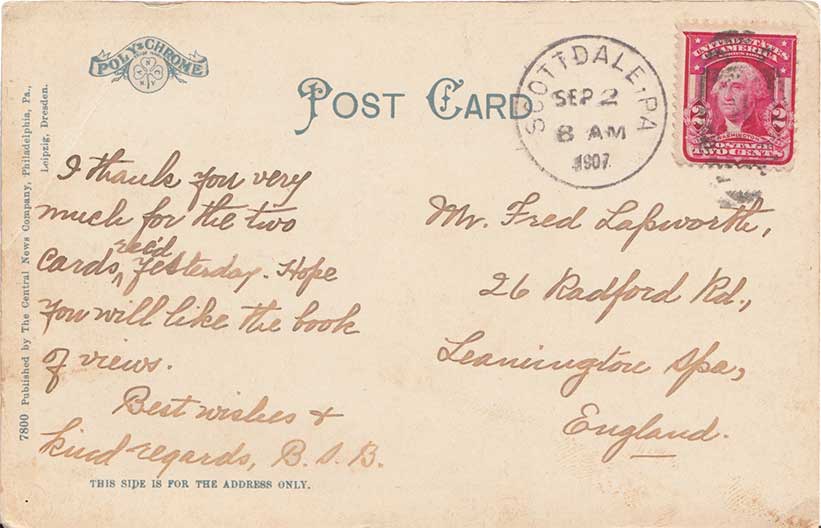 POLY-CHROME
POST CARD
SCOTTDALE, PA
SEP 2
8 AM
1907
UNITED STATES
OF AMERICA
2 2
WASHINGTON
POSTAGE
TWO CENTS
7800 Published by The Central News Company, Philadelphia, Pa.,
Leipzig, Dresden.
I thank you very
much for the two
cards, rec'd yesterday. Hope
you will like the book
of views.
Best wishes &
kind regards, B. S. B.
Mr. Fred Lapworth,
26 Radford Rd.,
Leamington Spa,
England.
THIS SIDE IS FOR THE ADDRESS ONLY.